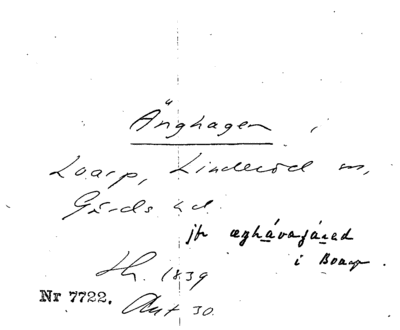 Änghagen i
Loarp, Linderöd sn,
Gärds hd.
jfr æŋhávagáræd
i Boarp
Lh. 1839
Nr 7722. Akt 30